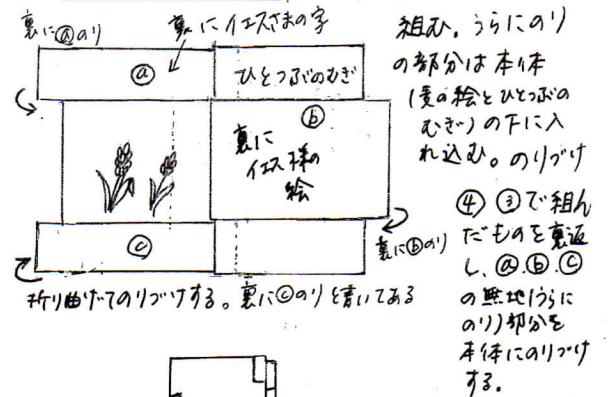 裏にⓐのり
裏にイエスさまの字
ⓐ
ひとつぶのむぎ
ⓑ
裏に
イエス様の
絵
ⓒ
裏にⓑのり
折り曲げてのりづけする。裏にⓒのりと書いてある
組む。うらにのり
の部分は本体
(麦の絵とひとつぶの
むぎ)の下に入
れ込む。のりづけ
④ ③で組ん
だものを裏返
し、ⓐ.ⓑ.ⓒ
の無地(うらに
のり)部分を
本体にのりづけ
する。